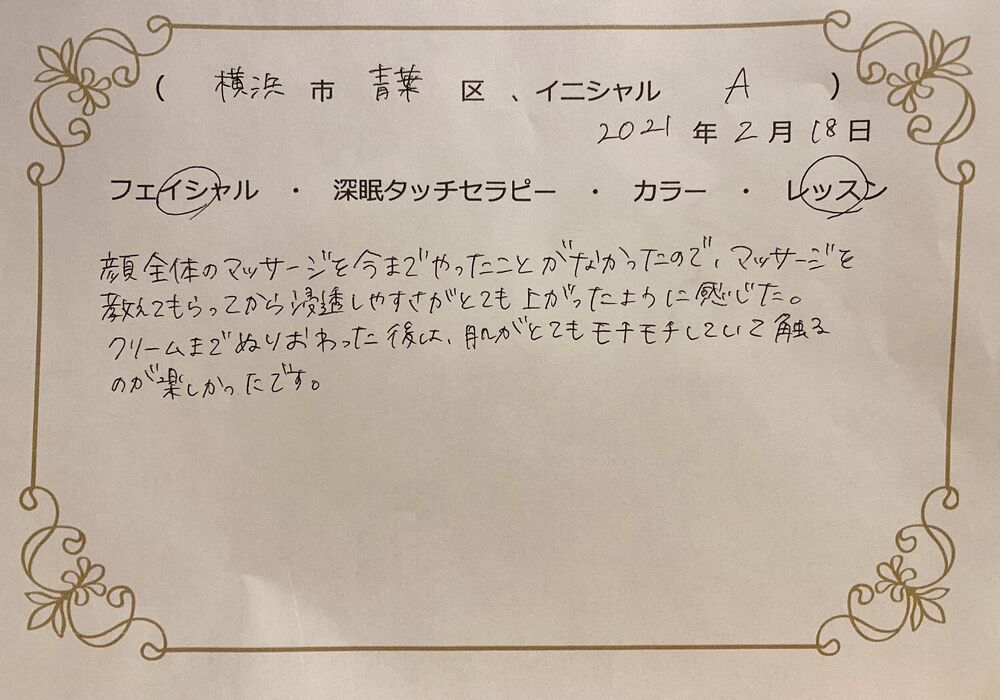 ( 横浜 市 青葉 区 、イニシャル A )
2021 年 2 月 18 日
フェイシャル ・ 深眠タッチセラピー ・ カラー ・ レッスン
顔全体のマッサージを今までやったことがなかったので、マッサージを
教えてもらってから浸透しやすさがとても上がったように感じた。
クリームまでぬりおわった後は、肌がとてもモチモチしていて触る
のが楽しかったです。